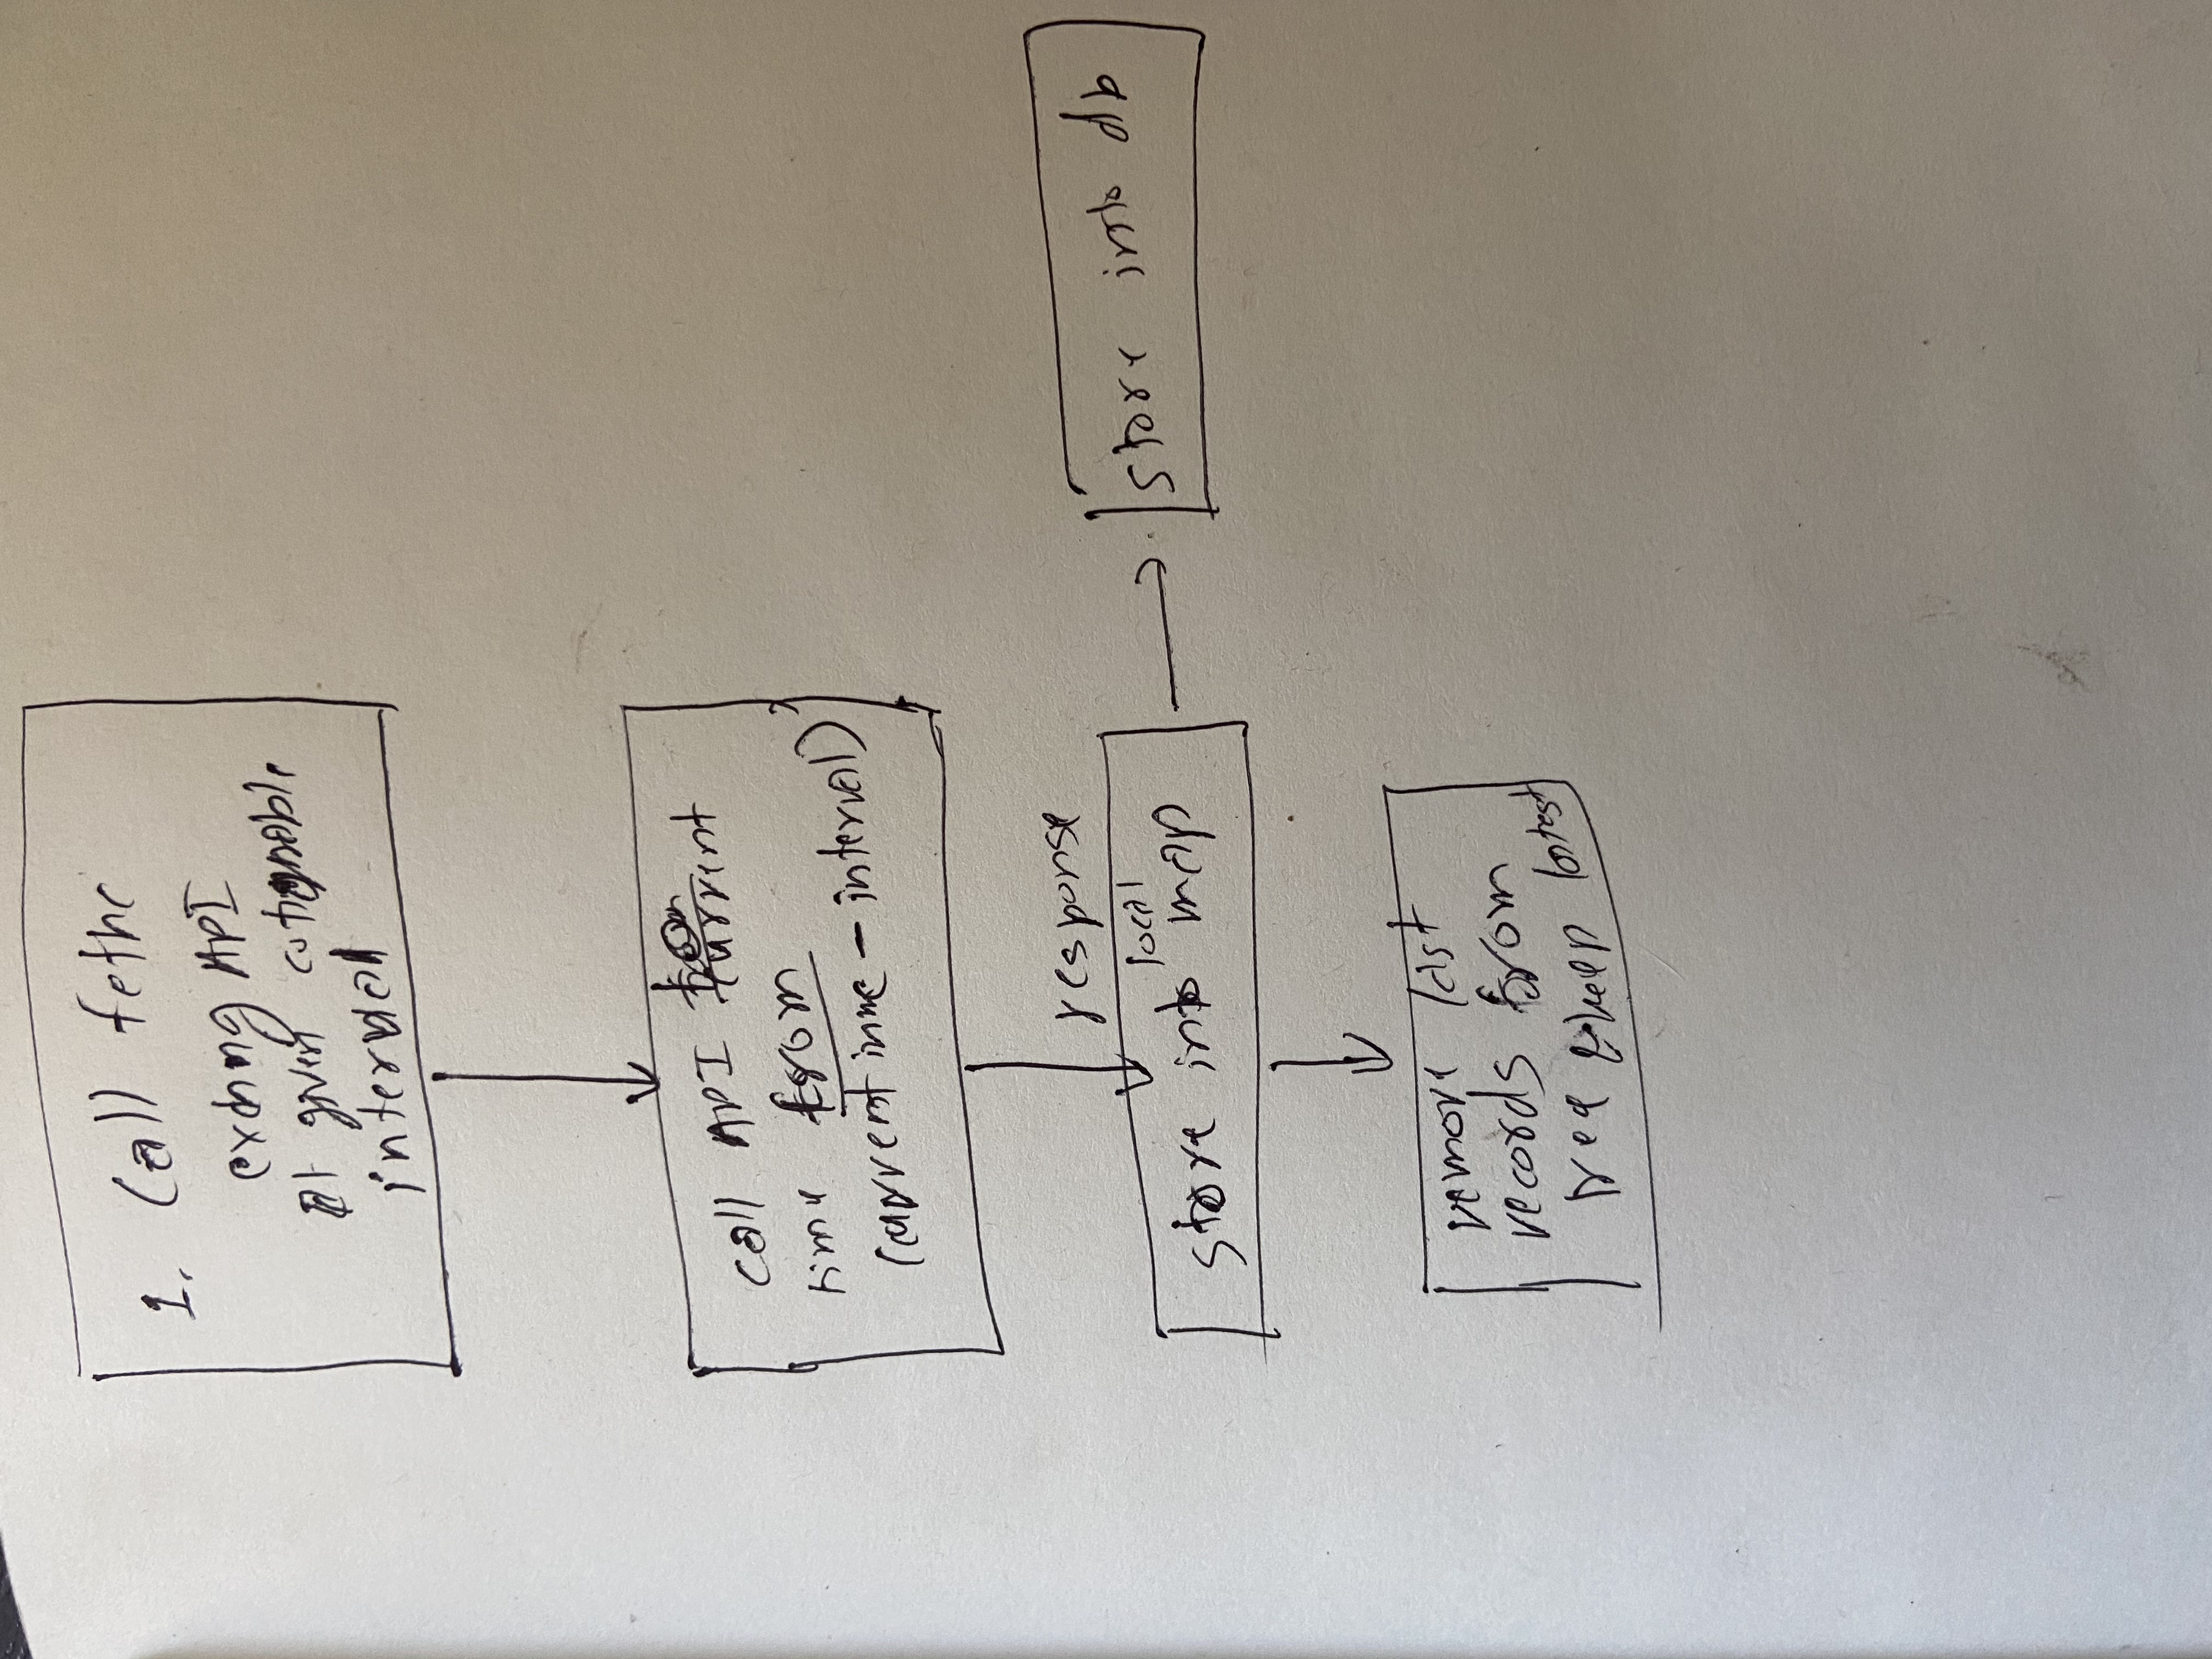 1. Call fethc
exchng API
at given
interval
call API current
time from
(current inme - interval)
response
local
store into map
store into db
remove last
records from
tree & keep latest